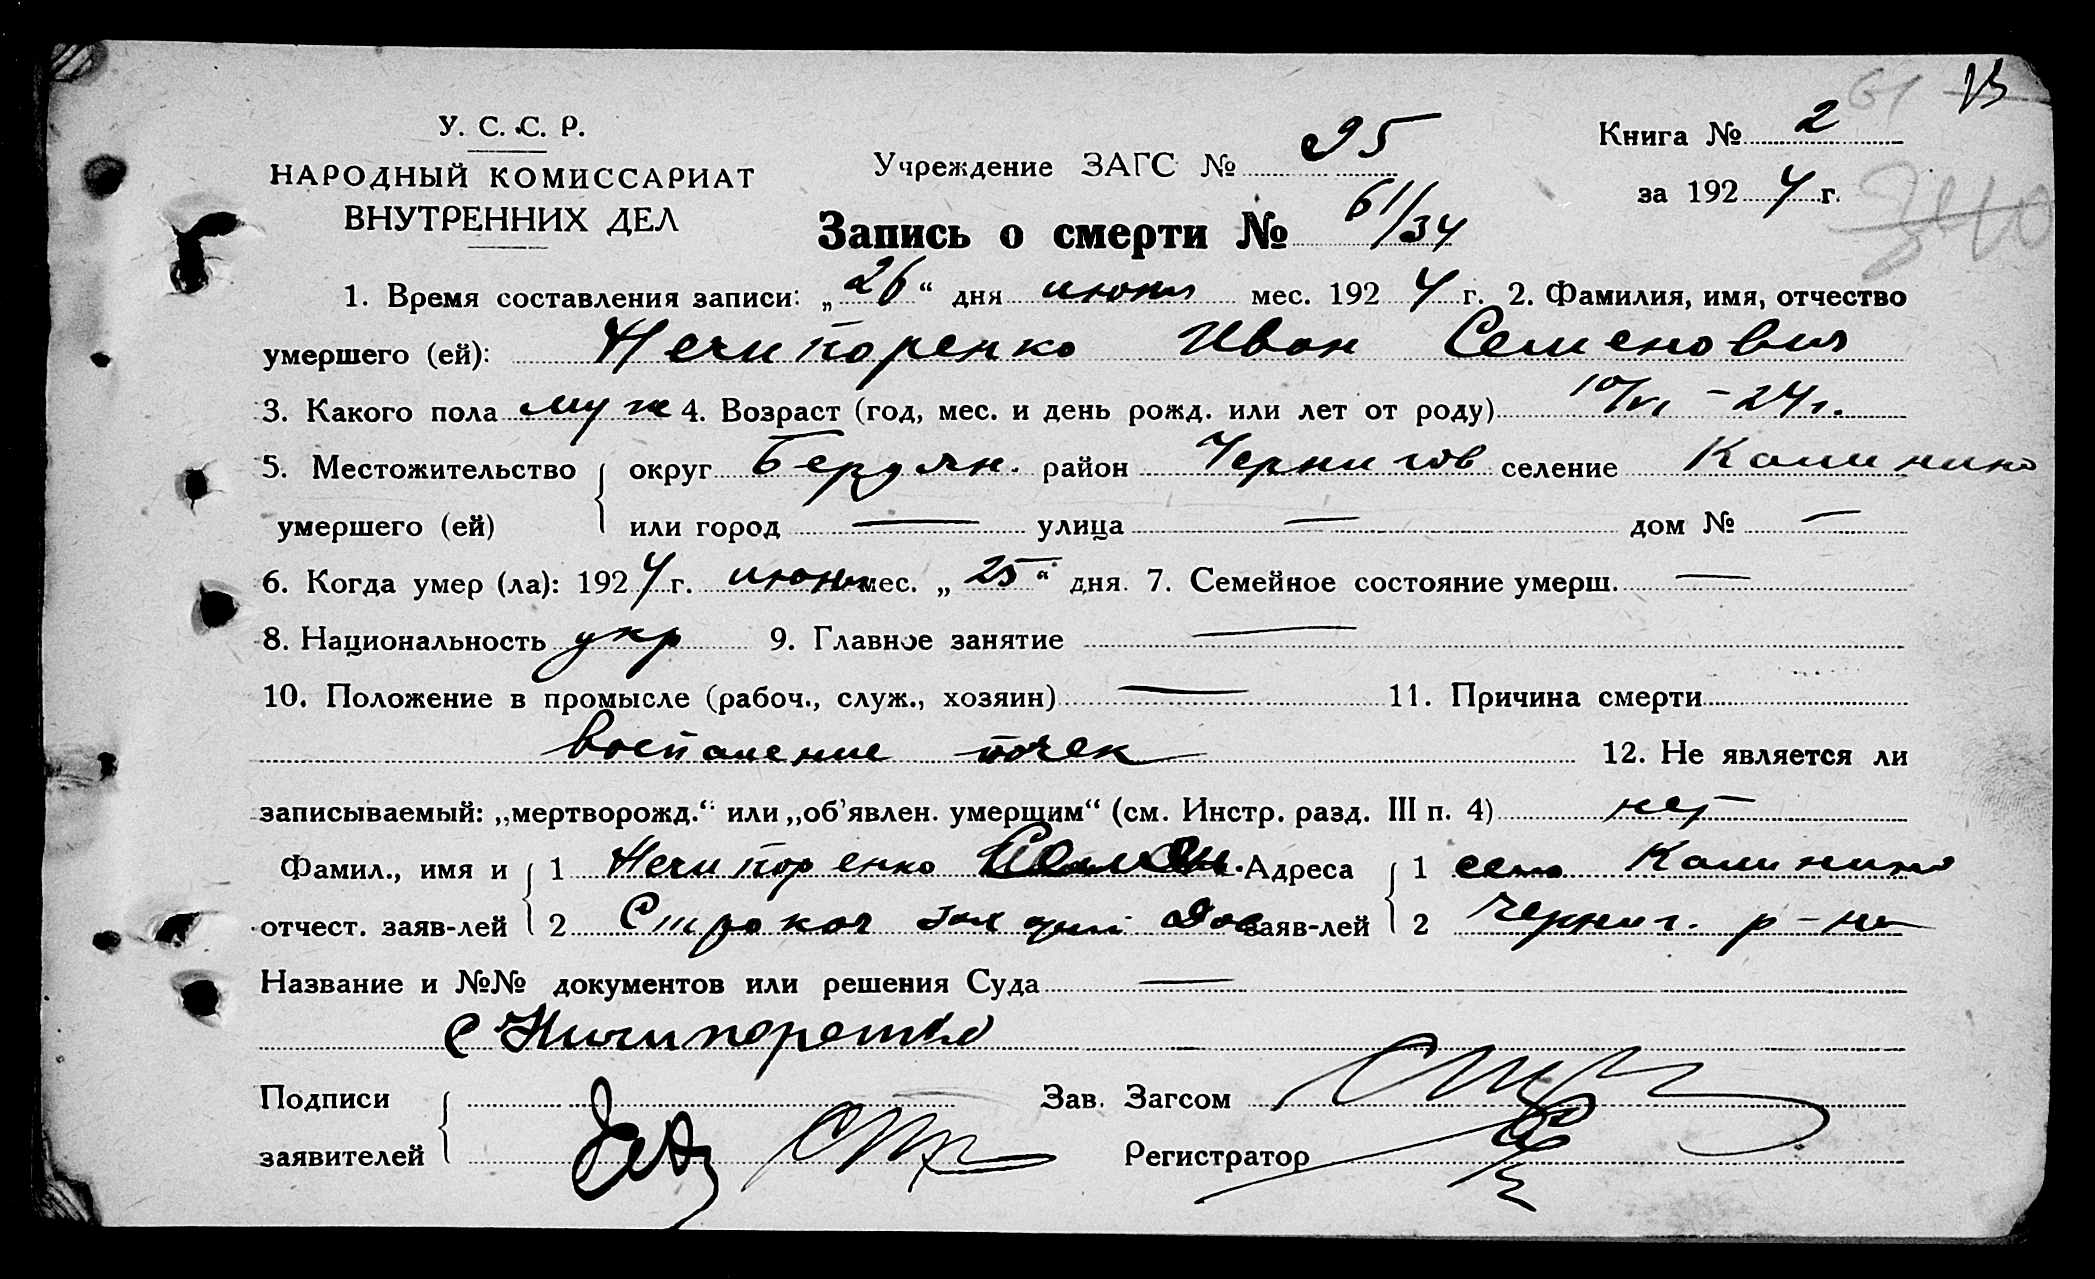 61 13
У. С. С. Р.
НАРОДНЫЙ КОМИССАРИАТ
ВНУТРЕННИХ ДЕЛ
Учреждение ЗАГС № 95
Книга № 2
за 1924 г.
Запись о смерти № 61/34
1. Время составления записи: „26“ дня июня мес. 1924 г. 2. Фамилия, имя, отчество
умершего (ей): Нечипоренко Иван Семенович
3. Какого пола муж 4. Возраст (год, мес. и день рожд. или лет от роду) 10/VI – 24 г.
5. Местожительство округ Бердян. район Чернигов селение Калинино
умершего (ей) или город — улица — дом № —
6. Когда умер (ла): 1924 г. июня мес. „25“ дня. 7. Семейное состояние умерш. —
8. Национальность укр 9. Главное занятие —
10. Положение в промысле (рабоч., служ., хозяин) — 11. Причина смерти
воспаление почек 12. Не является ли
записываемый: „мертворожд.“ или „об’явлен. умершим“ (см. Инстр. разд. III п. 4) нет
Фамил., имя и 1 Нечипоренко Семен. Адреса 1 село Калинино
отчест. заяв-лей 2 заяв-лей 2 Черниг. р-на
Название и №№ документов или решения Суда —
С Ничипоренко
Подписи Зав. Загсом
заявителей Регистратор